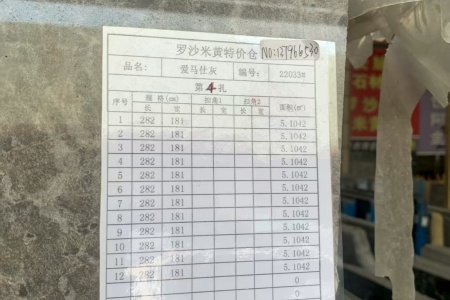 罗沙米黄特价仓 NO:137966530
品名: 爱马仕灰 编号: 22033#
第4扎
序号 规格(cm) 扣角1 扣角2 面积(㎡)
长 宽 长 宽 长 宽
1 282 181 5.1042
2 282 181 5.1042
3 282 181 5.1042
4 282 181 5.1042
5 282 181 5.1042
6 282 181 5.1042
7 282 181 5.1042
8 282 181 5.1042
9 282 181 5.1042
10 282 181 5.1042
11 282 181 5.1042
12 282 181 5.1042
0
0
石材
罗沙
米黄